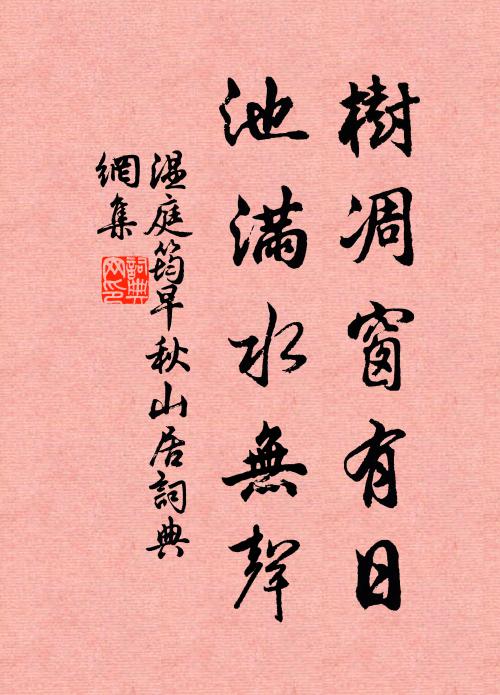 樹凋窗有日
池滿水無聲
溫庭筠早秋山居詞典
網集
詞典
网印